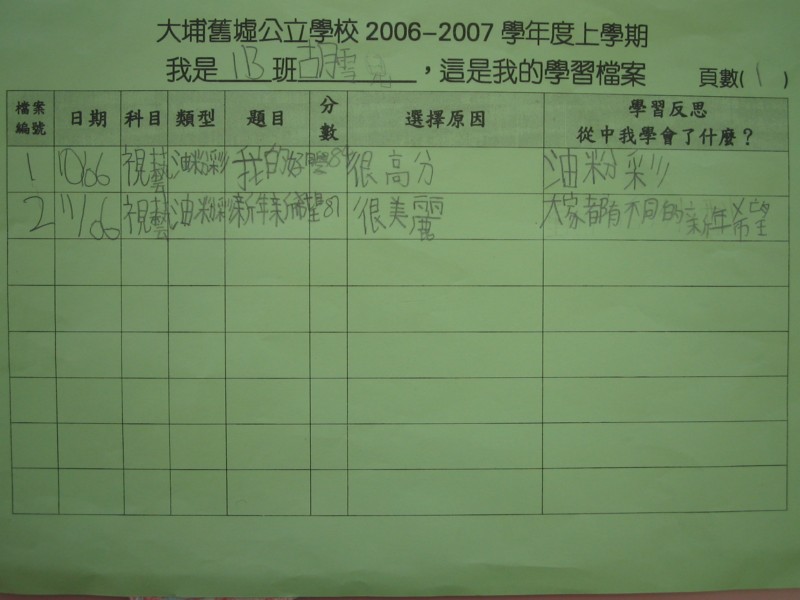 大埔舊墟公立學校 2006–2007 學年度上學期
我是 1B 班 胡雪 ，這是我的學習檔案 頁數( 1 )
檔案編號 日期 科目 類型 題目 分數 選擇原因 學習反思 從中我學會了什麼？
1 10/06 視藝 油粉彩 我的好 很高分 油粉彩
2 11/06 視藝 油粉彩 新年新希望 87 很美麗 大家都有不同的新年希望